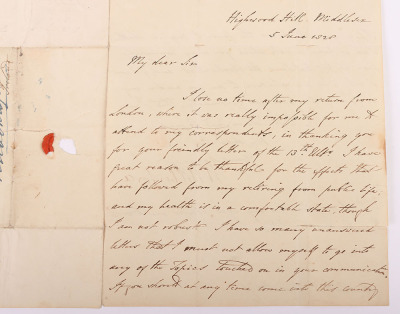 Highwood Hill Middlesex
5 June 1828
My dear Sir
I lose no time after my return from
London, where it was really impossible for me to
attend to my correspondents, in thanking you
for your friendly letter of the 13th Ult. I have
great reason to be thankful for the effects that
have followed from my retiring from public life;
and my health is in a comfortable state, though
I am not robust. I have so many unanswered
letters that I must not allow myself to go into
any of the Topics touched on in your communication
If you should at any time come into this country